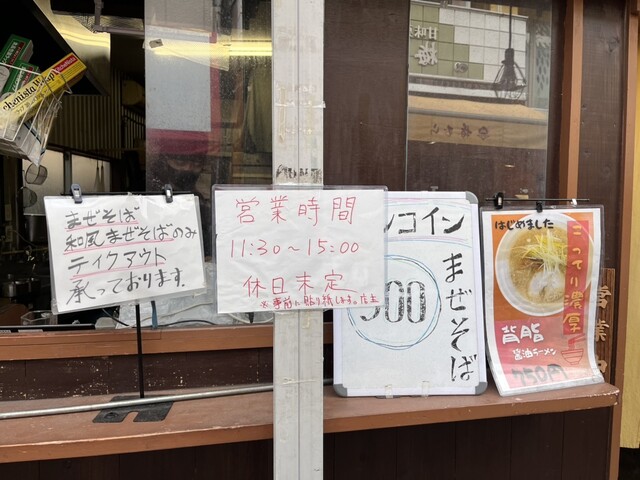 まぜそば
和風まぜそばのみ
テイクアウト
承っております。
営業時間
11:30〜15:00
休日未定
※事前に貼り紙します。店主
ンコイン
500
まぜそば
はじめました
こってり濃厚
背脂
醤油ラーメン
750円
営業